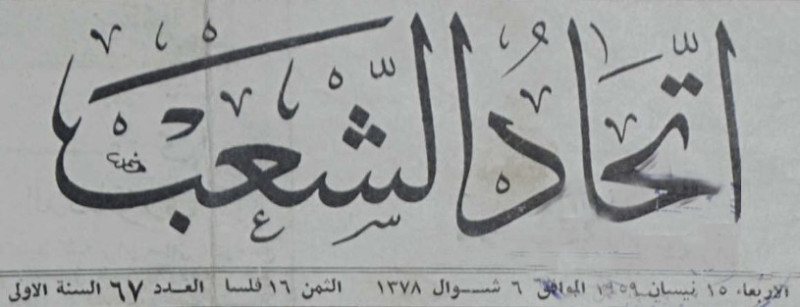 اتحاد الشعب
الاربعاء ١٥ نيسان ١٩٥٩ الموافق ٦ شوال ١٣٧٨ الثمن ١٦ فلسا العدد ٦٧ السنة الاولى